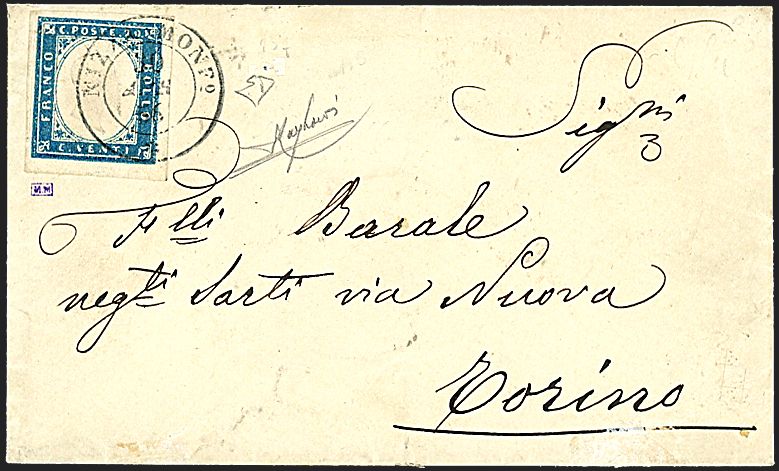 C. POSTE 20
FRANCO
BOLLO
C. VENTI
NIZZA MONFº
Sigri
Flli Barale
negti Sarti via Nuova
Torino